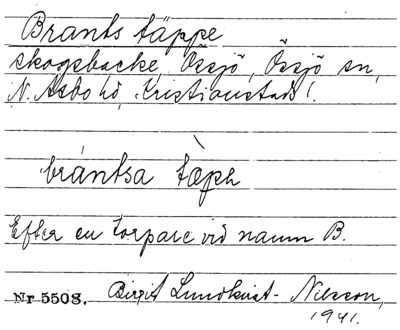 Brants täppe
skogsbacke, Össjö, Össjö sn,
N. Åsbo hd, Kristianstads l.
brántsa tæph
Efter en torpare vid namn B.
Nr 5508. Birgit Lundkvist-Nilsson,
1941.